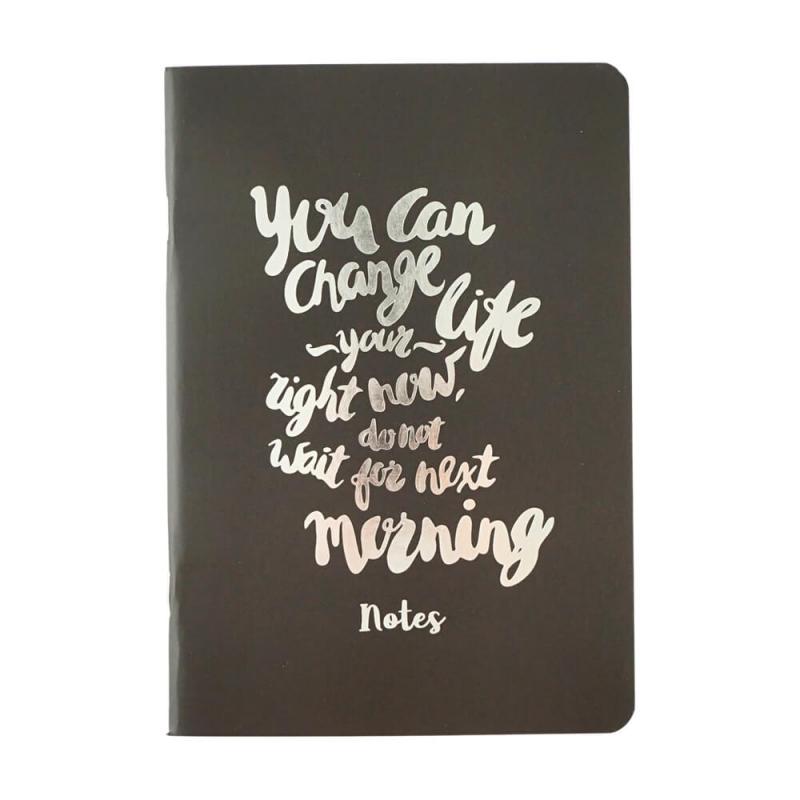 You Can
Change
~your~ life
right now,
do not
wait for next
morning
Notes